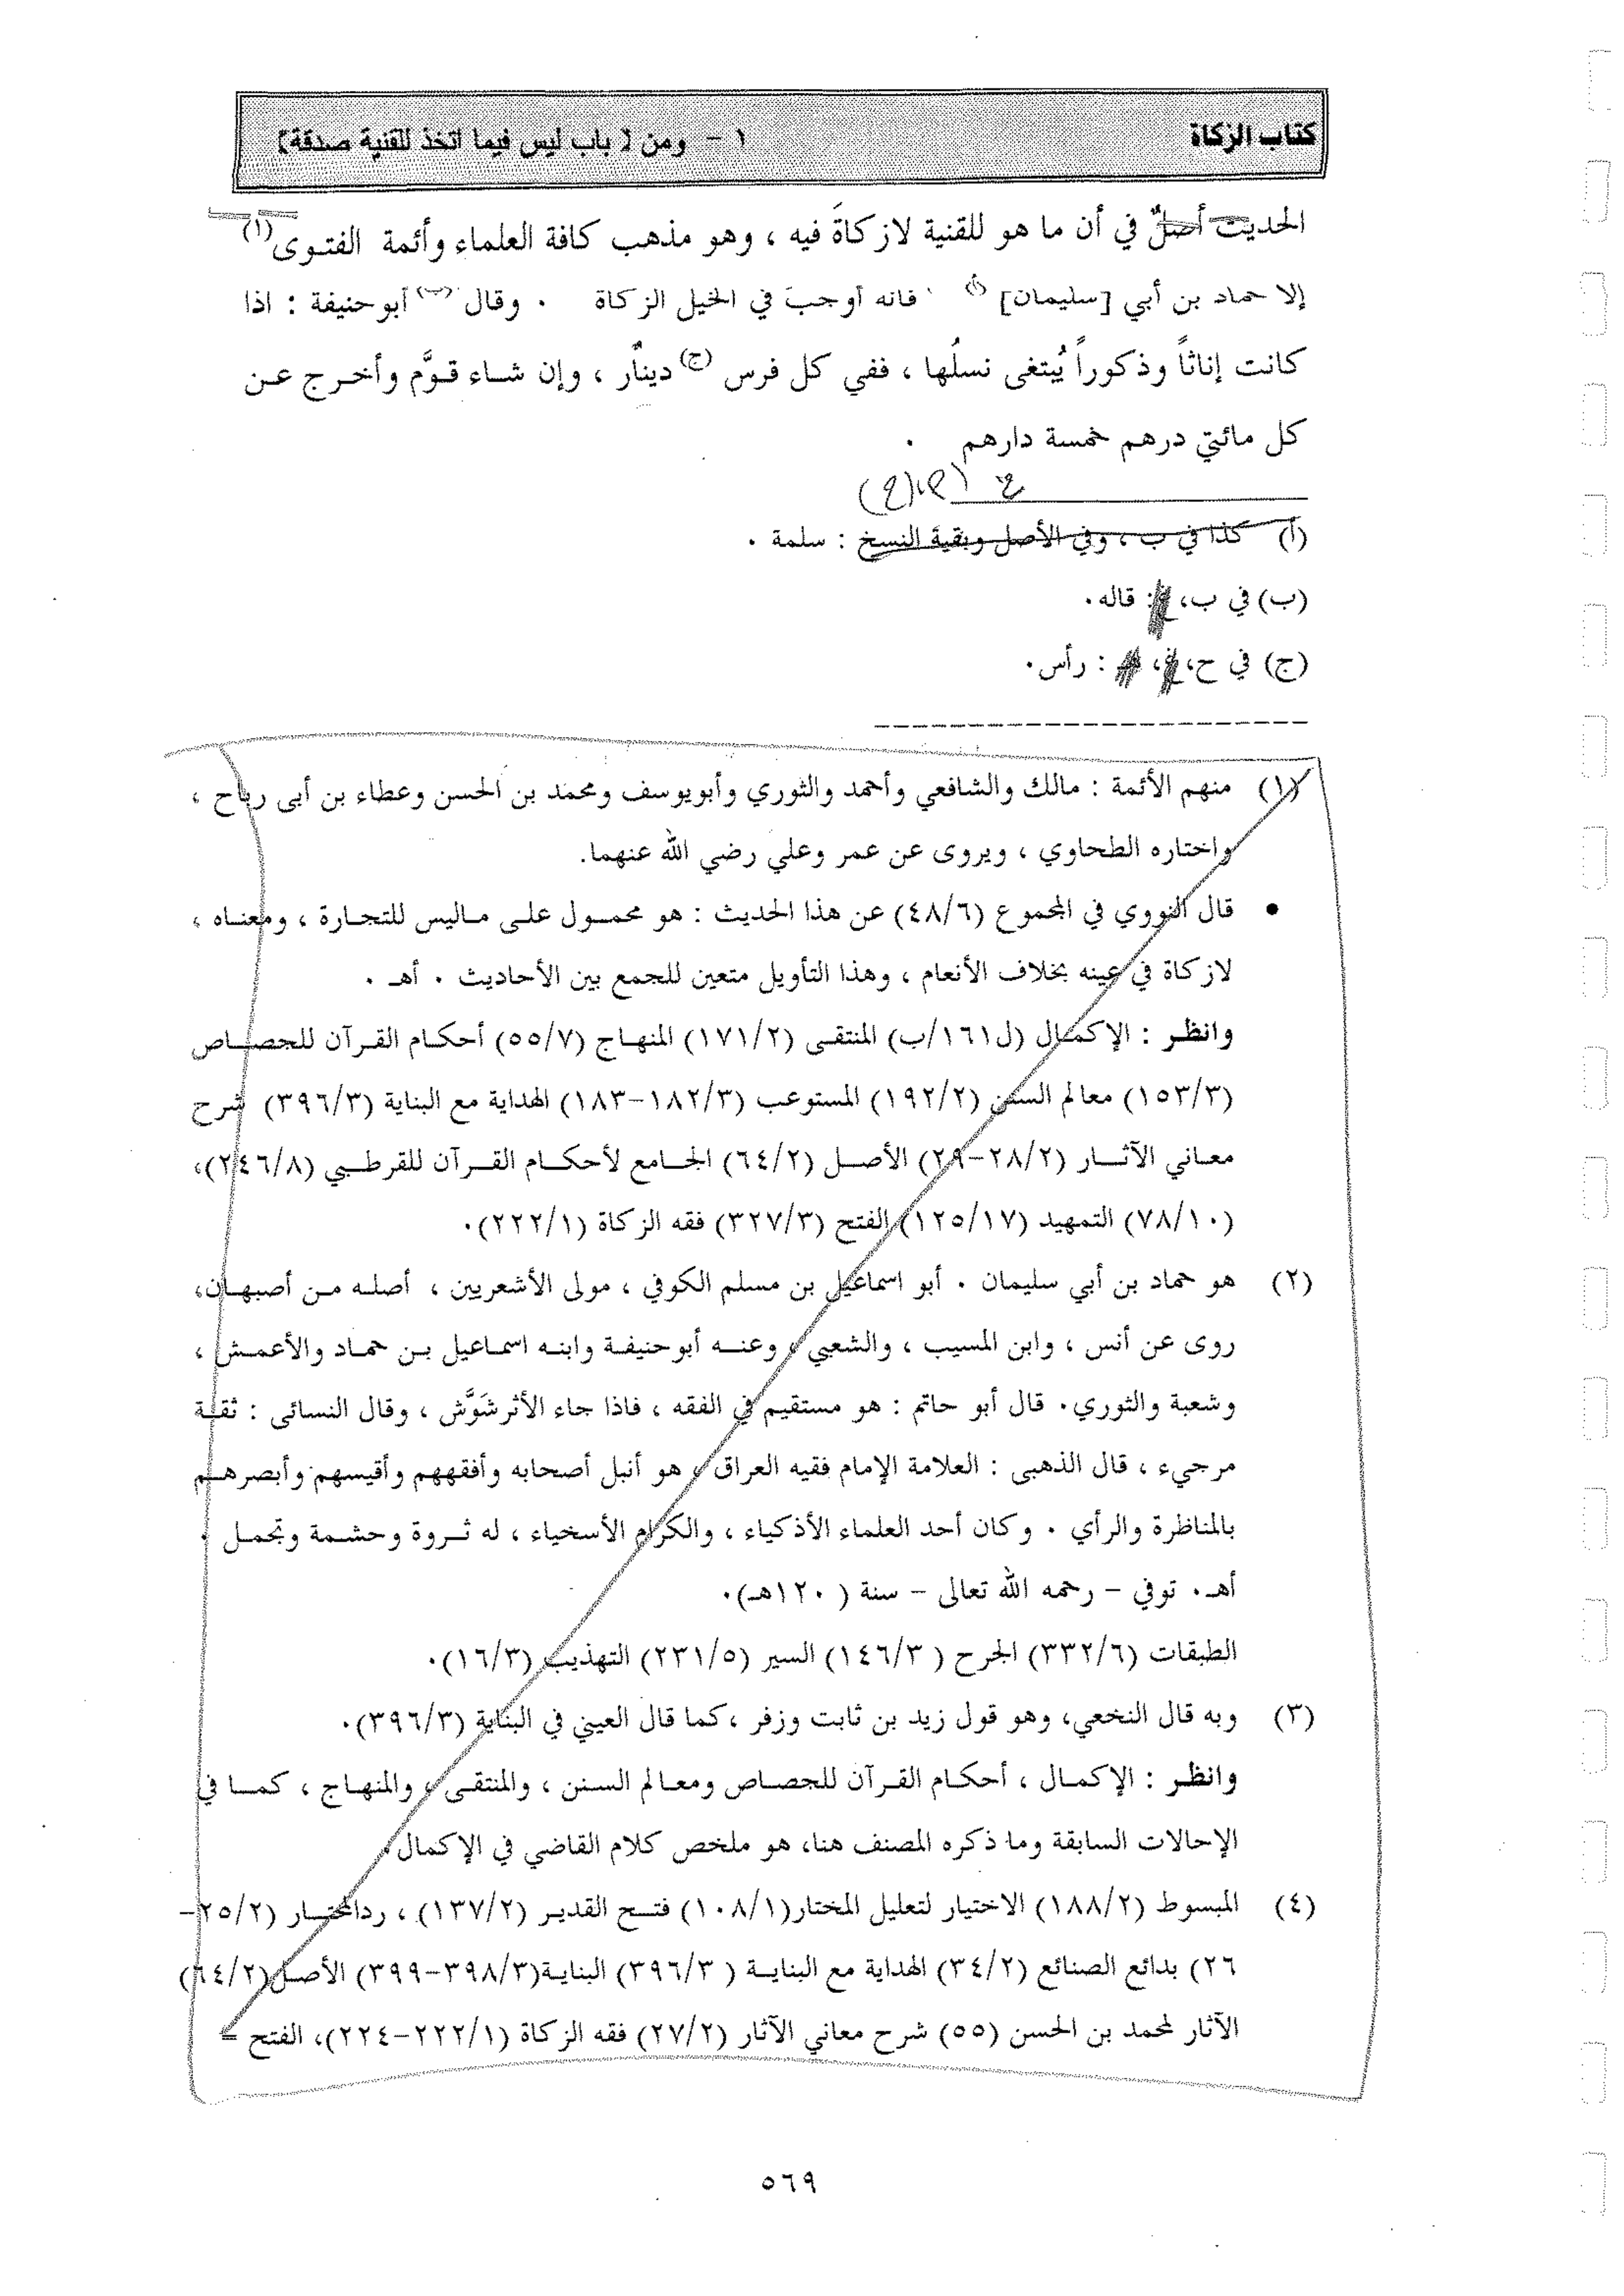 كتاب الزكاة
١ - ومن (باب ليس فيما اتخذ للقنية صدقة)
الحديث أصلٌ في أن ما هو للقنية لازكاةَ فيه ، وهو مذهب كافة العلماء وأئمة الفتوى(١)
إلا حماد بن أبي [سليمان] (أ) فانه أوجبَ في الخيل الزكاة . وقال (ب) أبوحنيفة : اذا
كانت إناثاً وذكوراً يُبتغى نسلُها ، ففي كل فرس (ج) دينارٌ ، وإن شاء قوَّم وأخرج عن
كل مائتي درهم خمسة دارهم .
(أ) كذا في ب ، وفي الأصل وبقية النسخ : سلمة .
(ب) في ب، : قاله.
(ج) في ح، : رأس.
(١) منهم الأئمة : مالك والشافعي وأحمد والثوري وأبويوسف ومحمد بن الحسن وعطاء بن أبى رباح ،
واختاره الطحاوي ، ويروى عن عمر وعلي رضي الله عنهما.
• قال النووي في المجموع (٤٨/٦) عن هذا الحديث : هو محمول على ماليس للتجارة ، ومعناه ،
لازكاة في عينه بخلاف الأنعام ، وهذا التأويل متعين للجمع بين الأحاديث . أهـ .
وانظر : الإكمال (ل١٦١/ب) المنتقى (١٧١/٢) المنهاج (٥٥/٧) أحكام القرآن للجصاص
(١٥٣/٣) معالم السنن (١٩٢/٢) المستوعب (١٨٢/٣-١٨٣) الهداية مع البناية (٣٩٦/٣) شرح
معاني الآثار (٢٨/٢-٢٩) الأصل (٦٤/٢) الجامع لأحكام القرآن للقرطبي (٢٤٦/٨)،
(٧٨/١٠) التمهيد (١٢٥/١٧) الفتح (٣٢٧/٣) فقه الزكاة (٢٢٢/١).
(٢) هو حماد بن أبي سليمان . أبو اسماعيل بن مسلم الكوفي ، مولى الأشعريين ، أصله من أصبهان،
روى عن أنس ، وابن المسيب ، والشعبي ، وعنه أبوحنيفة وابنه اسماعيل بن حماد والأعمش ،
وشعبة والثوري. قال أبو حاتم : هو مستقيم في الفقه ، فاذا جاء الأثر شَوَّش ، وقال النسائى : ثقة
مرجيء ، قال الذهبى : العلامة الإمام فقيه العراق ، هو أنبل أصحابه وأفقههم وأقيسهم وأبصرهم
بالمناظرة والرأي . وكان أحد العلماء الأذكياء ، والكرام الأسخياء ، له ثروة وحشمة وتجمل .
أهـ. توفي - رحمه الله تعالى - سنة ( ١٢٠هـ).
الطبقات (٣٣٢/٦) الجرح ( ١٤٦/٣) السير (٢٣١/٥) التهذيب (١٦/٣).
(٣) وبه قال النخعي، وهو قول زيد بن ثابت وزفر ،كما قال العيني في البناية (٣٩٦/٣).
وانظر : الإكمال ، أحكام القرآن للجصاص ومعالم السنن ، والمنتقى ، والمنهاج ، كما في
الإحالات السابقة وما ذكره المصنف هنا، هو ملخص كلام القاضي في الإكمال.
(٤) المبسوط (١٨٨/٢) الاختيار لتعليل المختار(١٠٨/١) فتح القدير (١٣٧/٢) ، ردالمحتار (٢٥/٢-
٢٦) بدائع الصنائع (٣٤/٢) الهداية مع البناية ( ٣٩٦/٣) البناية(٣٩٨/٣-٣٩٩) الأصل(٦٤/٢)
الآثار لمحمد بن الحسن (٥٥) شرح معاني الآثار (٢٧/٢) فقه الزكاة (٢٢٢/١-٢٢٤)، الفتح =
٥٦٩